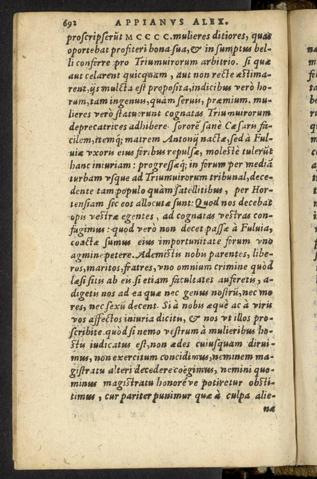 692 APPIANVS ALEX.
proscripserūt MCCCC. mulieres ditiores, quas
oportebat profiteri bona sua, & in sumptus bel-
li conferre pro Triumuirorum arbitrio. Si quæ
aut celarent quicquam, aut non recte æstima-
rent, ijs mulcta est proposita, indicibus verò ho-
rum, tam ingenuis, quàm seruis, præmium. mu-
lieres verò statuerunt cognatas Triumuirorum
deprecatrices adhibere. Sororē sanè Cæsaris fa-
cilem, itemq; matrem Antonij nactæ, sed à Ful-
uia vxore eius foribus repulsæ, molestè tulerūt
hanc iniuriam: progressæq; in forum per mediā
turbam vsque ad Triumuirorum tribunal, dece-
dente tam populo quàm satellitibus, per Hor-
tensiam sic eos allocutæ sunt: Quod nos decebat
opis vestræ egentes, ad cognatas vestras con-
fugimus: quod verò non decet passæ à Fuluia,
coactæ sumus eius importunitate forum vno
agmine petere. Ademistis nobis parentes, libe-
ros, maritos, fratres, vno omnium crimine quòd
læsi sitis ab eis. si etiam facultates auferetis, a-
digetis nos ad ea quæ nec genus nostrū, nec mo
res, nec sexū decent. Si à nobis æquè ac à viris
vos affectos iniuria dicitis, & nos vt illos pro-
scribite. quòd si nemo vestrûm à mulieribus ho-
stis iudicatus est, non ædes cuiusquam dirui-
mus, non exercitum concidimus, neminem ma-
gistratu alteri decedere coëgimus, nemini quo-
minus magistratu honoréve potiretur obsti-
timus, cur pariter punimur quæ à culpa alie-
næ